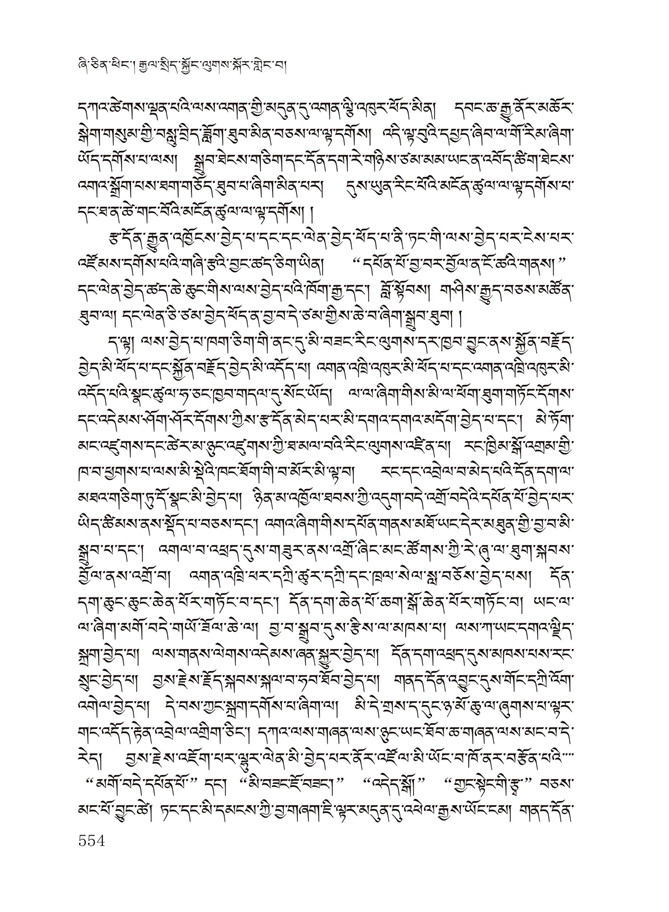 ཞི་ཅིན་ཕིང་། རྒྱལ་སྲིད་སྐྱོང་ལུགས་སྐོར་གླེང་བ།
དཀའ་ཚེགས་ལྡན་པའི་ལས་འགན་གྱི་མདུན་དུ་འགན་ལྕི་འཁུར་ཕོད་མིན། དབང་ཆ་རྒྱུ་ནོར་མཚོར་
སྒེག་གསུམ་གྱི་བསླུ་བྲིད་ཟློག་ཐུབ་མིན་བཅས་ལ་ལྟ་དགོས། འདི་ལྟ་བུའི་དཔྱད་ཞིབ་ལ་གོ་རིམ་ཞིག་
ཡོད་དགོས་པ་ལས། སྒྲུབ་ཐེངས་གཅིག་དང་དོན་དག་རེ་གཉིས་ཙམ་མམ་ཡང་ན་འབོད་ཚིག་ཐེངས་
འགའ་སྒྲོག་པས་ཐག་གཅོད་ཐུབ་པ་ཞིག་མིན་པར། དུས་ཡུན་རིང་པོའི་མངོན་ཚུལ་ལ་ལྟ་དགོས་པ་
དང་ཐ་ན་ཚེ་གང་བོའི་མངོན་ཚུལ་ལ་ལྟ་དགོས། །
རྩ་དོན་རྒྱུན་འཁྱོངས་བྱེད་པ་དང་དང་ལེན་བྱེད་ཕོད་པ་ནི་ཏང་གི་ལས་བྱེད་པར་ངེས་པར་
འཛོམས་དགོས་པའི་གཞི་རྩའི་བྱང་ཚད་ཅིག་ཡིན། “དཔོན་པོ་བྱ་བར་བྱོལ་ན་ངོ་ཚའི་གནས།”
དང་ལེན་བྱེད་ཚད་ཆེ་ཆུང་གིས་ལས་བྱེད་པའི་ཁོག་རྒྱ་དང་། བློ་སྟོབས། གཤིས་རྒྱུད་བཅས་མཚོན་
ཐུབ་ལ། དང་ལེན་ཅི་ཙམ་བྱེད་ཕོད་ན་བྱ་བ་དེ་ཙམ་གྱིས་ཆེ་བ་ཞིག་སྒྲུབ་ཐུབ། །
ད་ལྟ། ལས་བྱེད་པ་ཁག་ཅིག་གི་ནང་དུ་མི་བཟང་རིང་ལུགས་དར་ཁྱབ་བྱུང་ནས་སྐྱོན་བརྗོད་
བྱེད་མི་ཕོད་པ་དང་སྐྱོན་བརྗོད་བྱེད་མི་འདོད་པ། འགན་འཁྲི་འཁུར་མི་ཕོད་པ་དང་འགན་འཁྲི་འཁུར་མི་
འདོད་པའི་སྣང་ཚུལ་ཧ་ཅང་ཁྱབ་གདལ་དུ་སོང་ཡོད། ལ་ལ་ཞིག་གིས་མི་ལ་ཕོག་ཐུག་གཏོང་དོགས་
དང་འདེམས་ཤོག་ཤོར་དོགས་ཀྱིས་རྩ་དོན་མེད་པར་མི་དགའ་དགའ་མདོག་བྱེད་པ་དང་། མེ་ཏོག་
མང་འཛུགས་དང་ཚེར་མ་ཉུང་འཛུགས་ཀྱི་ཐ་མལ་བའི་རིང་ལུགས་འཛིན་པ། རང་ཁྱིམ་སྒོ་འགྲམ་གྱི་
ཁ་བ་ཕྱགས་པ་ལས་མི་སྡེའི་ཁང་ཐོག་གི་བ་མོར་མི་ལྟ་བ། རང་དང་འབྲེལ་བ་མེད་པའི་དོན་དག་ལ་
མཐའ་གཅིག་ཏུ་དོ་སྣང་མི་བྱེད་པ། ཉིན་མ་འཁྱོལ་ཐབས་ཀྱི་འདུག་བདེ་འགྲོ་བདེའི་དཔོན་པོ་བྱེད་པར་
ཡིད་ཚིམས་ནས་སྡོད་པ་བཅས་དང་། འགའ་ཞིག་གིས་དཔོན་གནས་མཐོ་ཡང་དེར་མཐུན་གྱི་བྱ་བ་མི་
སྒྲུབ་པ་དང་། འགལ་བ་འཕྲད་དུས་གཟུར་ནས་འགྲོ་ཞིང་མང་ཚོགས་ཀྱི་རེ་ཞུ་ལ་ཐུག་སྐབས་
བྱོལ་ནས་འགྲོ་བ། འགན་འཁྲི་ཕར་དཀྲི་ཚུར་དཀྲི་དང་ཁྲལ་སེལ་སླ་བཅོས་བྱེད་པས། དོན་
དག་ཆུང་ཆུང་ཆེན་པོར་གཏོང་བ་དང་། དོན་དག་ཆེན་པོ་ཆག་སྒོ་ཆེན་པོར་གཏོང་བ། ཡང་ལ་
ལ་ཞིག་མགོ་བདེ་གཡོ་ཟོལ་ཆེ་ལ། བྱ་བ་སྒྲུབ་དུས་རྩིས་ལ་མཁས་པ། ལས་ཀ་ཡང་དགའ་ལྗིད་
སྐྲག་བྱེད་པ། ལས་གནས་ལེགས་འདེམས་ཞན་སྐྱུར་བྱེད་པ། དོན་དག་འཕྲད་དུས་མཁས་པས་རང་
སྲུང་བྱེད་པ། བྱས་རྗེས་རྫོད་སྐབས་སྐལ་བ་ཧབ་ཐོབ་བྱེད་པ། གནད་དོན་འབྱུང་དུས་གོང་དཀྲི་འོག་
འགེལ་བྱེད་པ། དེ་བས་ཀྱང་སྐྲག་དགོས་པ་ཞིག་ལ། མི་དེ་གྲས་ད་དུང་ཉ་མོ་ཆུ་ལ་ཞུགས་པ་ལྟར་
གང་འདོད་རྟེན་འབྲེལ་འགྲིག་ཅིང་། དཀའ་ལས་གཞན་ལས་ཉུང་ཡང་ཐོབ་ཆ་གཞན་ལས་མང་བ་དེ་
རེད། བྱས་རྗེས་འཇོག་པར་ལྷུར་ལེན་མི་བྱེད་པར་ནོར་འཛོལ་མི་ཡོང་བ་ཁོ་ནར་བརྩོན་པའི་
“མགོ་བདེ་དཔོན་པོ” དང། “མི་བཟང་ཇོ་བཟང།” “འདེད་སྒོ།” “གྱང་སྟེང་གི་རྩྭ” བཅས་
མང་པོ་བྱུང་ཚེ། ཏང་དང་མི་དམངས་ཀྱི་བྱ་གཞག་ཇི་ལྟར་མདུན་དུ་འཕེལ་རྒྱས་ཡོང་ངམ། གནད་དོན་
554